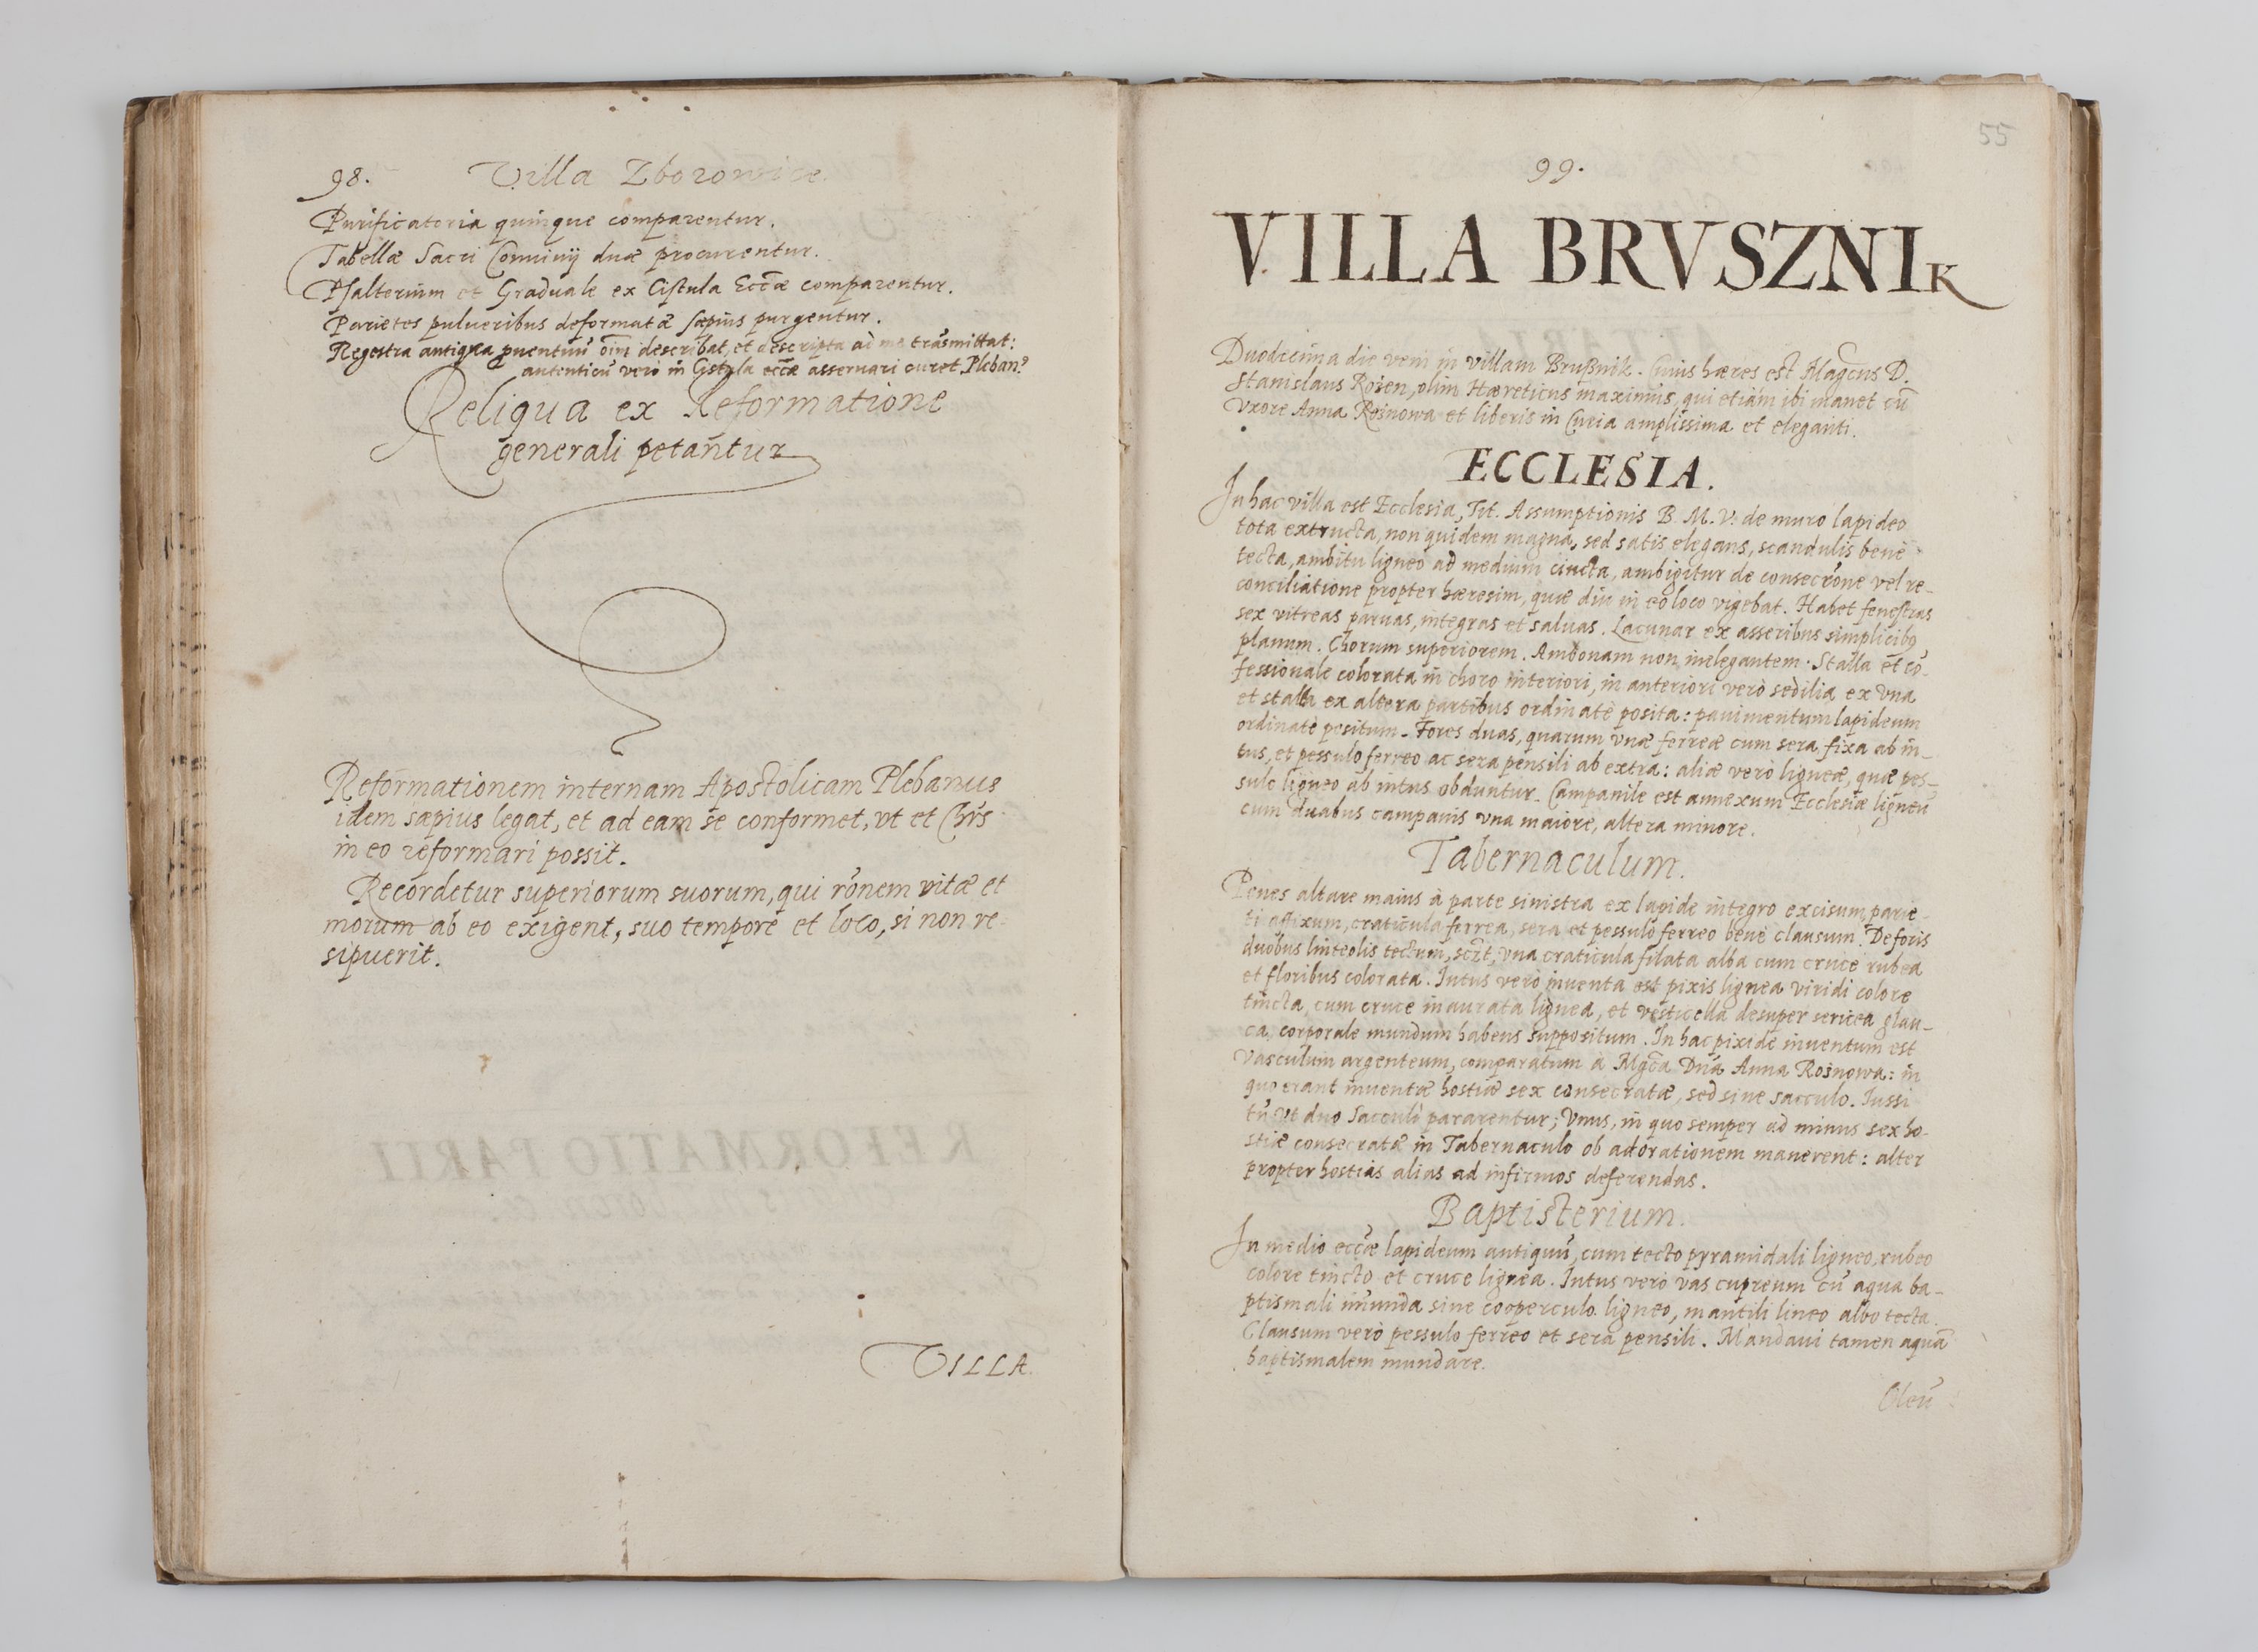 98. Villa Zborowice.
Purificatoria quinque comparentur.
Tabellæ Sacri Conuiuij duæ procurentur.
Psalterium et Graduale ex Cistula Eccæ comparentur.
Parietes pulueribus deformatæ sæpius purgentur.
Regestra antiqua puentuũ oĩm describat, et descripta ad me trãsmittat:
autenticũ verò in Cistula eccæ asseruari curet Pleban9
Reliqua ex Reformatione
generali petantur
Reformationem internam Apostolicam Plebanus
idem sæpius legat, et ad eam se conformet, vt et Chrs
in eo reformari possit.
Recordetur superiorum suorum, qui rõnem vitæ et
morum ab eo exigent, suo tempore et loco, si non re-
sipuerit.
VILLA.
55
99.
VILLA BRVSZNIK
Duodecima die veni in villam Brußnik. Cuius hæres est Magcus D.
Stanislaus Rożen, olim Hæreticus maximus, qui etiam ibi manet cũ
vxore Anna Rożnowa et liberis in Curia amplissima et eleganti.
ECCLESIA.
In hac villa est Ecclesia, Tit. Assumptionis B. M. V. de muro lapideo
tota extructa, non quidem magna, sed satis elegans, scandulis benè
tecta, ambitu ligneo ad medium cincta, ambigitur de consecrõne vel re-
conciliatione propter hæresim, quæ diu in eo loco vigebat. Habet fenestras
sex vitreas paruas, integras et saluas. Lacunar ex asseribus simplicib9
planum. Chorum superiorem. Ambonam non inelegantem. Stalla et cõ-
fessionale colorata in choro interiori, in anteriori verò sedilia ex vna
et stalla ex altera partibus ordinatè posita: pauimentum lapideum
ordinatè positum. Fores duas, quarum vnæ ferreæ cum sera fixa ab in-
tus, et pessulo ferreo ac sera pensili ab extra: aliæ verò ligneæ, quæ pes-
sulo ligneo ab intus obduntur. Campanile est annexum Ecclesiæ ligneũ
cum duabus campanis vna maiore, altera minore.
Tabernaculum.
Penes altare maius à parte sinistra ex lapide integro excisum, parie-
ti affixum, craticula ferrea, sera et pessulo ferreo benè clausum. De foris
duobus linteolis tectum, sczt, vna craticula filata alba cum cruce rubea
et floribus colorata. Intus verò inuenta est pixis lignea viridi colore
tincta, cum cruce inaurata lignea, et vesticella desuper sericea glau-
ca, corporale mundum habens suppositum. In hac pixide inuentum est
vasculum argenteum, comparatum à Mgca Dña Anna Rożnowa: in
quo erant inuentæ hostiæ sex consecratæ, sed sine sacculo. Iussi
tñ vt duo Sacculi pararentur; Vnus, in quo semper ad minus sex ho-
stiæ consecratæ in Tabernaculo ob adorationem manerent: alter
propter hostias alias ad infirmos deferendas.
Baptisterium.
In medio eccæ lapideum antiquũ, cum tecto pyramidali ligneo, rubeo
colore tincto et cruce lignea. Intus verò vas cupreum cũ aqua ba-
ptismali imunda sine cooperculo ligneo, mantili lineo albo tecta.
Clausum verò pessulo ferreo et sera pensili. Mandaui tamen aquã
baptismalem mundare.
Oleũ